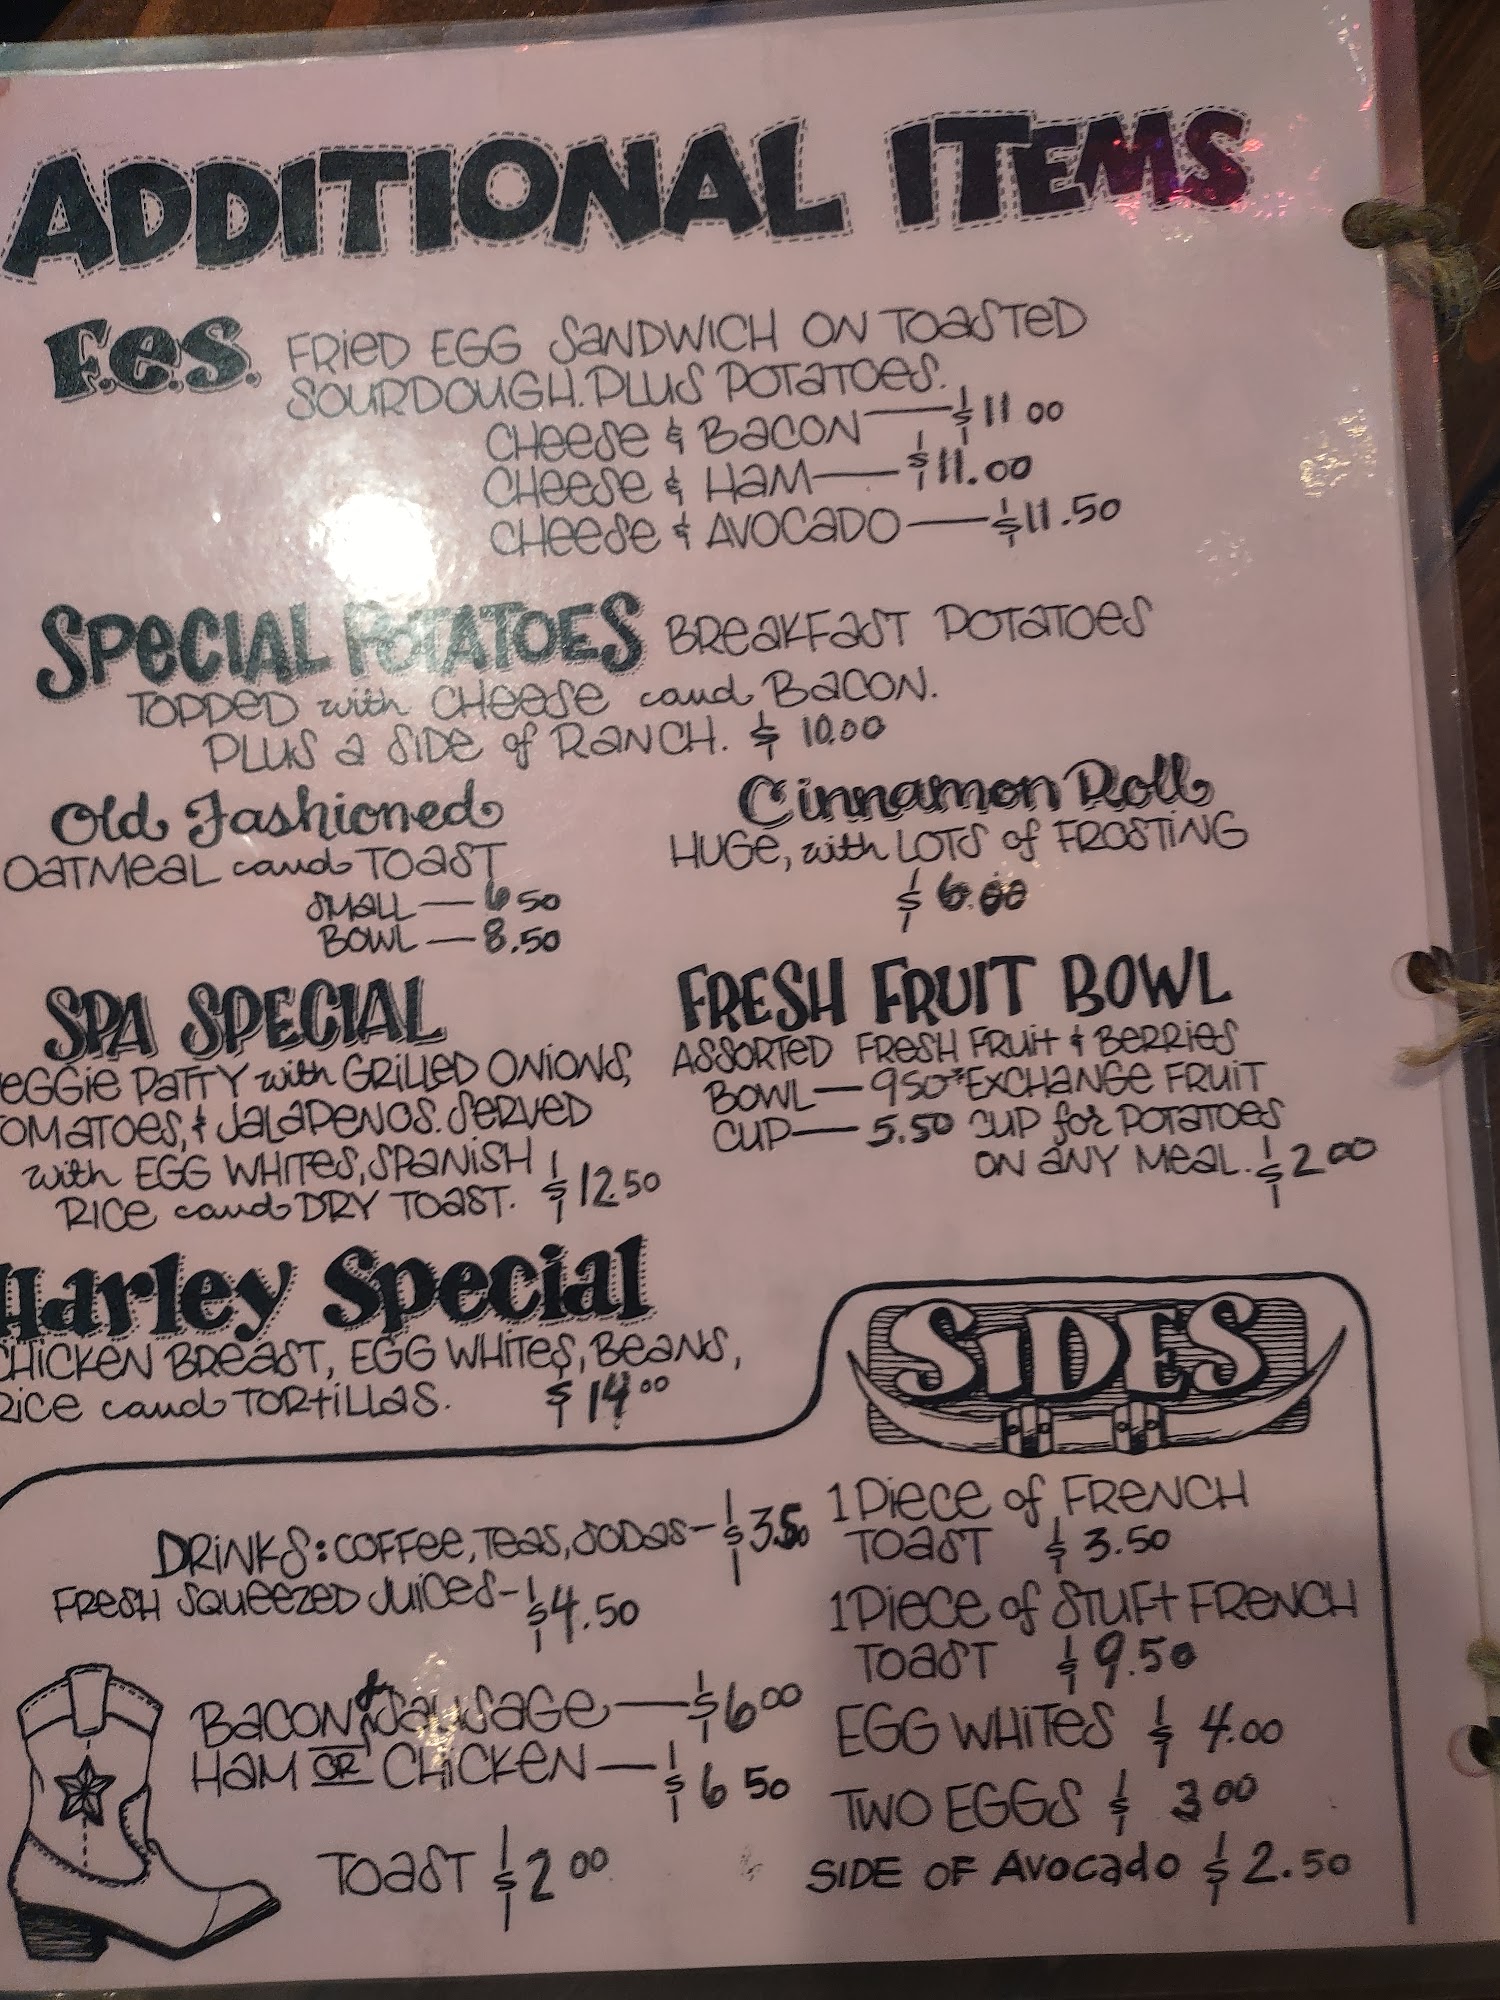 ADDITIONAL ITEMS
F.e.S. FRIED EGG SANDWICH ON TOASTED
SOURDOUGH. PLUS POTATOES.
CHEESE & BACON — $11 00
CHEESE & HAM — $11.00
CHEESE & AVOCADO — $11.50
SPECIAL POTATOES BREAKFAST POTATOES
TOPPED with CHEESE and BACON.
PLUS A SIDE of RANCH. $ 10.00
Old Fashioned
OATMEAL and TOAST
SMALL — 6 50
BOWL — 8.50
Cinnamon Roll
HUGE, with LOTS of FROSTING
$ 6.00
SPA SPECIAL
EGGIE PATTY with GRILLED ONIONS,
TOMATOES, & JALAPENOS. SERVED
with EGG WHITES, SPANISH
RICE and DRY TOAST. $12.50
FRESH FRUIT BOWL
ASSORTED FRESH FRUIT & BERRIES
BOWL — 950 *EXCHANGE FRUIT
CUP — 5.50 CUP for POTATOES
ON ANY MEAL. $2 00
Harley Special
CHICKEN BREAST, EGG WHITES, BEANS,
RICE and TORTILLAS. $14 00
SIDES
DRINKS: COFFEE, TEAS, SODAS - $3.50
FRESH SQUEEZED JUICES - $4.50
BACON & SAUSAGE — $6 00
HAM OR CHICKEN — $6 50
TOAST $2 00
1 PIECE of FRENCH
TOAST $ 3.50
1 PIECE of STUFT FRENCH
TOAST $ 9.50
EGG WHITES $ 4.00
TWO EGGS $ 3 00
SIDE OF AVOCADO $ 2.50